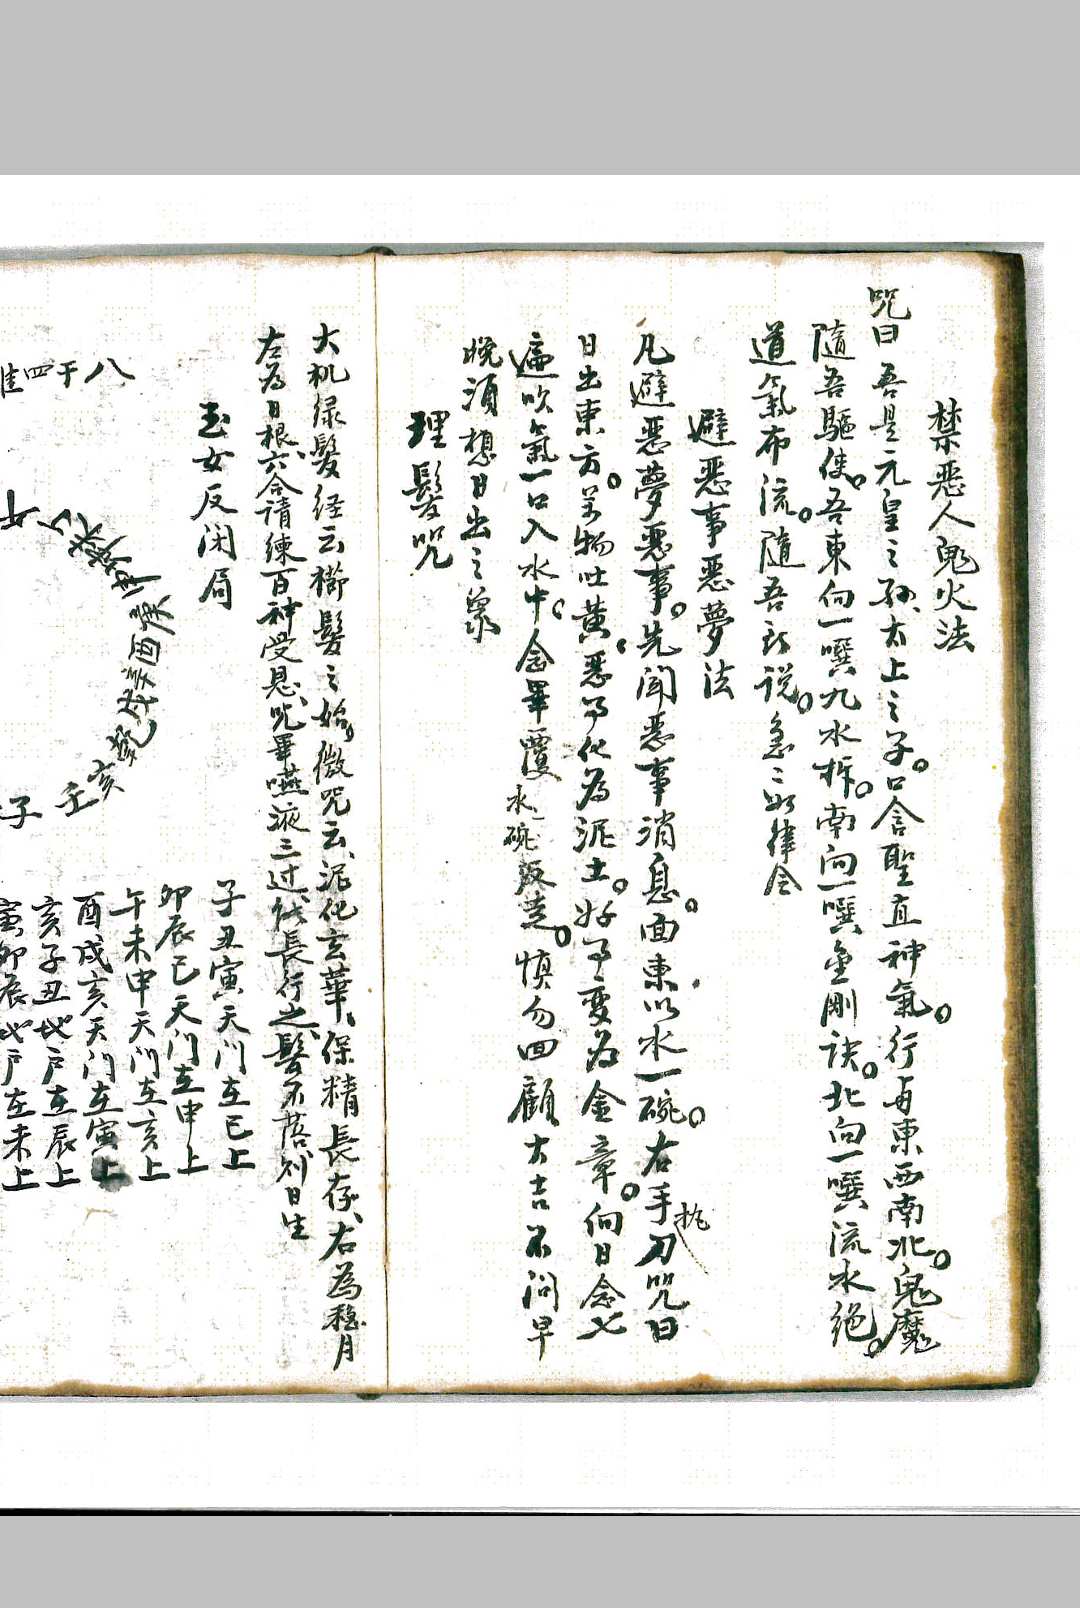 禁惡人鬼火法
咒曰 吾是元皇之孫、太上之子。口含聖直神氣。行與東西南北。鬼魔
隨吾驅使。吾東向一噀九水柝。南向一噀金剛訣。北向一噀流水絕。
道氣布流。隨吾所說。急〻如律令
避惡事惡夢法
凡避惡夢惡事。先闻惡事消息。面東以水一碗。右手执刀咒曰
日出東方。万物吐黃。惡事化為泥土。好事变為金章。向日念七
遍吹氣一口入水中。念畢覆水碗 走。慎勿回顧大吉不问早
晚須想日出之象
理髮咒
大机绿髮経云櫛髮之始。微咒云、泥化玄華、保精長存、右為 月
左為日根、六合清練百神受恩、咒畢嚥液三过、 長行之、髮不落 日生
玉女反闭局
八干四隹
女
亥
壬
子
子丑寅天门在巳上
卯辰巳天门在申上
午未申天门在亥上
酉戌亥天门在寅上
亥子丑地户在辰上
寅卯辰地户在未上